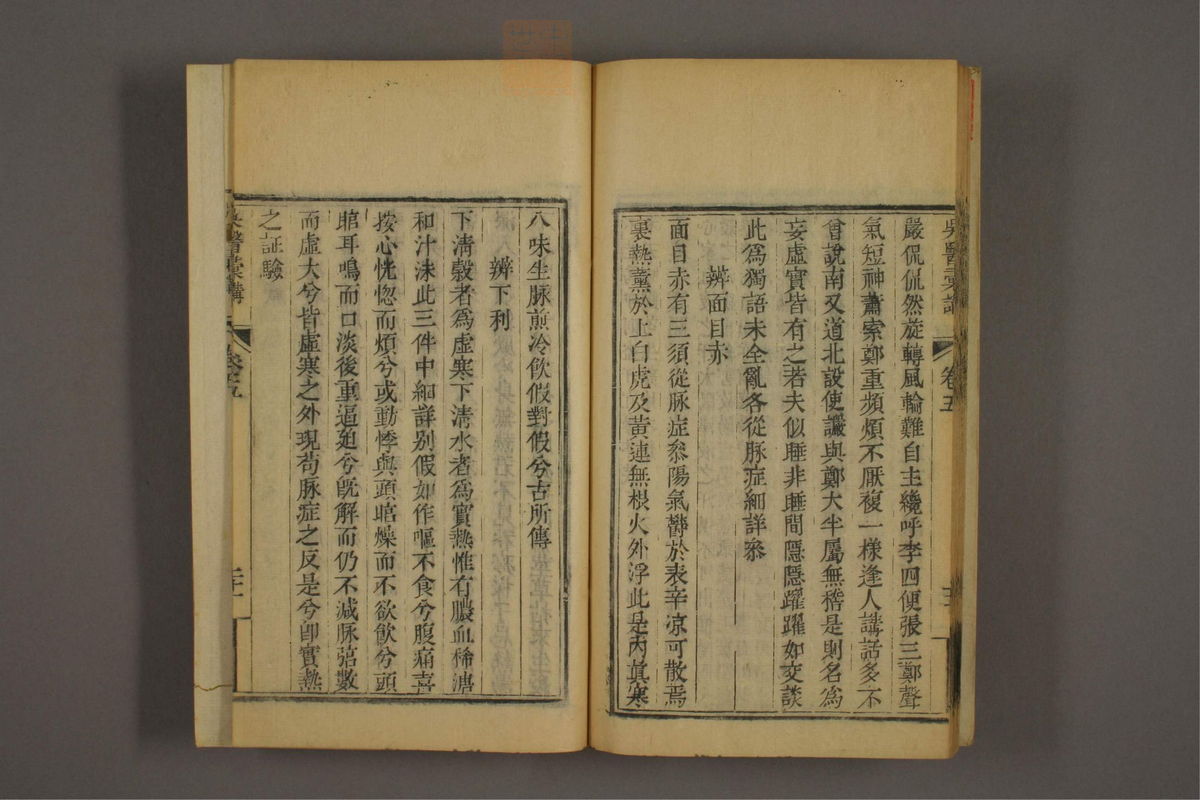 吳醫彙講 卷五
嚴侃侃然旋轉風輪難自主纔呼李四便張三鄭聲
氣短神蕭索鄭重頻煩不厭複一樣逢人講話多不
曾說南又道北設使讝與鄭大半屬無稽是則名為
妄虛實皆有之若夫似睡非睡間隱隱躍躍如交談
此為獨語未全亂各從脉症細詳叅
辨面目赤
面目赤有三須從脉症叅陽氣鬱於表辛凉可散焉
裏熱薰於上白虎及黃連無根火外浮此是內眞寒
八味生脉煎冷飲假對假兮古所傳
辨下利
下淸穀者為虛寒下淸水者為實熱惟有膿血稀溏
和汁沫此三件中細詳別假如作嘔不食兮腹痛喜
按心恍惚而煩兮或動悸與頭暗燥而不欲飲兮頭
暗耳鳴而口淡後重逼廹兮旣解而仍不減脉數
而虛大兮皆虛寒之外現苟脉症之反是兮卽實熱
之証驗
吳醫彙講 卷五